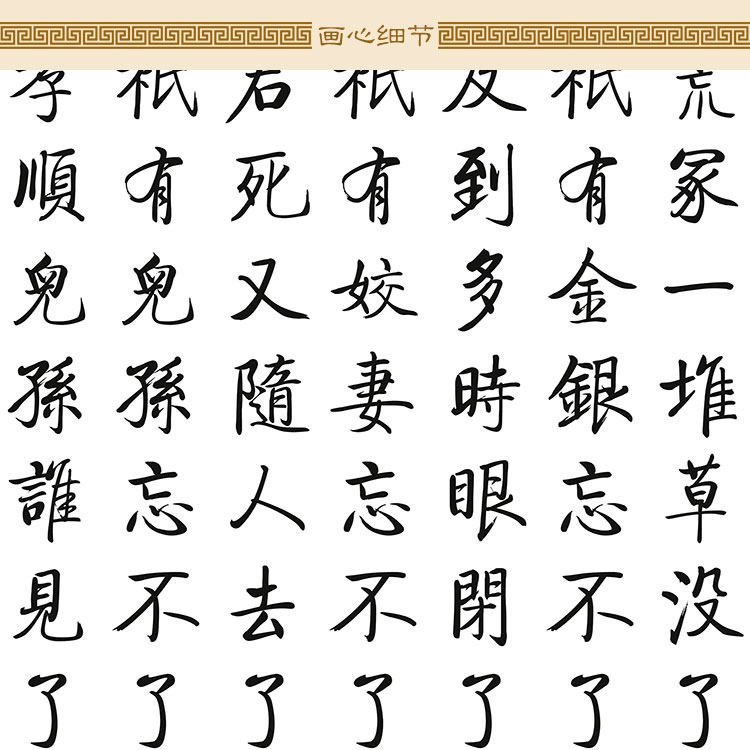 画心细节
荒冢一堆草没了
祇有金銀忘不了
及到多時眼閉了
祇有姣妻忘不了
君死又隨人去了
祇有兒孫忘不了
孝順兒孫誰見了